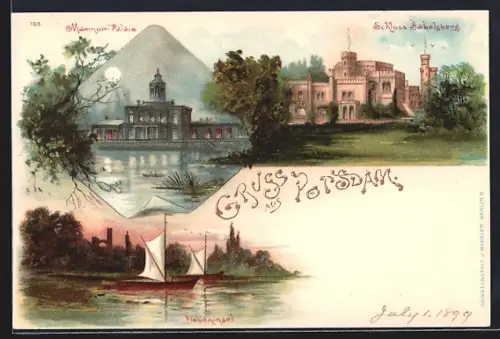 193.
Marmor-Palais
Schloss Babelsberg
GRUSS
AUS
POTSDAM.
Havelinsel
July 1. 1899